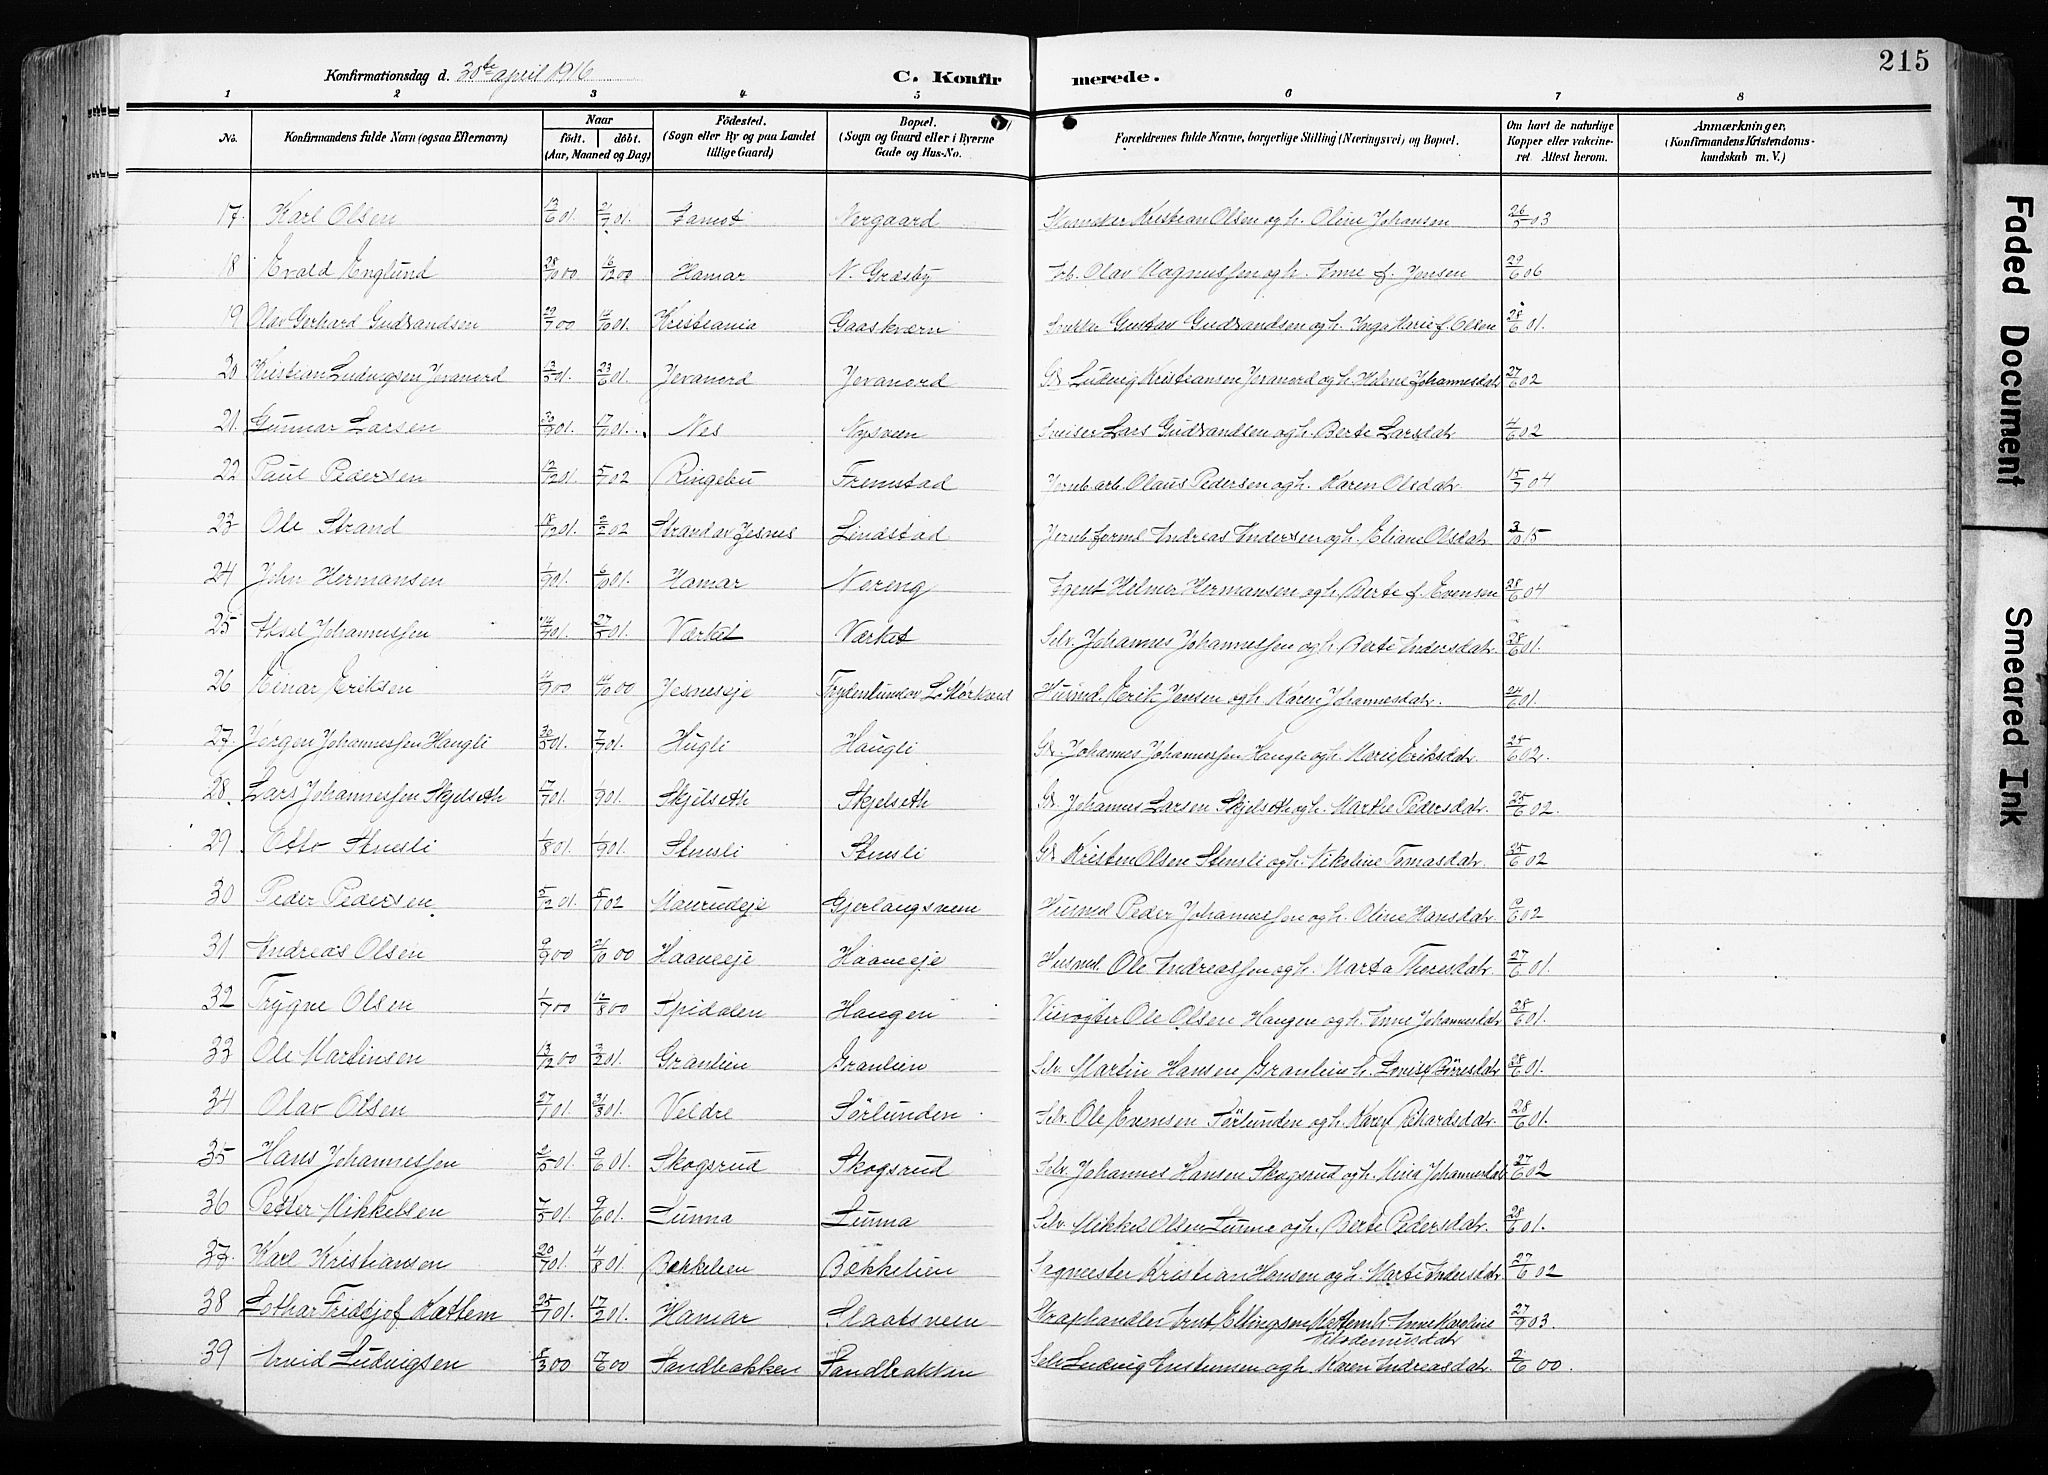 215
Konfirmationsdag d. 30te april 1916
C. Konfirmerede.
1 2 3 4 5 6 7 8
No. Konfirmandens fulde Navn (ogsaa Efternavn) Naar født. døbt. (Aar, Maaned og Dag) Fødested. (Sogn eller By og paa Landet tillige Gaard) Bopæl. (Sogn og Gaard eller i Byerne Gade og Hus-No. Forældrenes fulde Navne, borgerlige Stilling (Næringsvei) og Bopæl. Om havt de naturlige Kopper eller vakcineret. Attest herom. Anmærkninger. (Konfirmandens Kristendomskundskab m. V.)
17. Karl Olsen 13/6 01. 21/7 01. Nergaard Kristian Olsen og h. Oline Johansen 26/5 03
18 Evald Englund 28/10 00 16/12 00 Hamar N. Græsby Olav Magnussen og h. Anne f. Jensen 29/6 06
19 Olav Gerhard Gudrandsen 29/7 00 Kristiania Gaaskværn Gustav Gudrandsen og h. Inga Marie f. Olsen 28/6 01.
20 Kristian Ludvigsen Jevanord 13/5 01. 23/6 01. Jevanord Jevanord Gb. Ludvig Kristiansen Jevanord og h. Helene Johannesdatr 27/6 02
21. Gunnar Larsen Nes Nysveen Sveiser Lars Gudrandsen og h. Berte Larsdatr 4/6 02
22 Paul Pedersen 12/12 01. 5/1 02 Ringebu Fremstad Jernb.arb. Olaus Pedersen og h. Karen Olsdatr. 15/7 04
23 Ole Strand 18/12 01. 2/2 02 Strand av Jesnes Lindstad Jernb.forml. Andreas Andersen og h. Eliane Olsdatr 3/10 15
24 John Hermansen 1/9 01. 6/10 01. Hamar Nereng Agent Helmer Hermansen og h. Berte f. Evensen 28/6 04
25 Aksel Johannessen 27/5 01. Værket Værket Selv. Johannes Johannessen og h. Berte Andersdatr. 28/6 01.
26 Einar Eriksen 14/10 00 Jesneseje Frydenlund av L. Mørkved Husmd. Erik Jensen og h. Karen Johannesdatr. 24/6 01.
27. Jørgen Johannessen Haugli 30/5 01. 7/7 01. Hugli Haugli Gb. Johannes Johannessen Haugli og h. Marie Eriksdatr. 25/6 02.
28. Lars Johannessen Skjelseth 17/7 01. 1/9 01. Skjelseth Skjelseth Gb. Johannes Larsen Skjelseth og h. Marthe Pedersdatr. 25/6 02.
29 Otto Stensli 1/8 01. 1/9 01. Stensli Stensli Gb. Kristen Olsen Stensli og h. Nikoline Tomasdatr. 25/6 02
30 Peder Pedersen 5/12 01. 5/1 02 Maurudeje Gjerlaugsveen Husmd Peder Johannessen og h. Oline Hansdatr. 9/6 02
31 Andreas Olsen 9/9 00 21/10 00 Haaneeje Haaneeje Husmd. Ole Andreassen og h. Marta Thoresdatr. 27/6 01.
32 Trygve Olsen 1/7 00 12/8 00 Spidalen Haugen Ole Olsen Haugen og h. Anne Johannesdatr 28/6 01.
33 Ole Martinsen 13/12 00 3/2 01. Granlien Granlien Selv. Martin Hansen Granlien h. Lovise Børresdatr 28/6 01.
34 Olav Olsen 27/1 01. 31/3 01. Veldre Sørlunden Selv. Ole Evensen Sørlunden og h. Karen Rikardsdatr. 28/6 01.
35 Hans Johannessen 2/5 01. 9/6 01. Skogsrud Skogsrud Selv. Johannes Hansen Skogsrud og h. Maria Johannesdatr 27/6 02
36 Petter Mikkelsen 7/5 01. 9/6 01. Lunna Lunna Selv. Mikkel Olsen Lunna og h. Berte Pedersdatr. 28/6 01.
37. Karl Kristiansen 20/7 01. 4/8 01. Bøkkelien Bøkkelien Sagmester Kristian Hansen og h. Marte Andersdatr 27/6 02
38 Lothar Fridtjof Kattem 25/1 01. 17/2 01. Hamar Slaatsveen Skraphandler Arnt Ellingsen Kattem h. Anne Karoline Nikodemusdatr 27/9 03.
39 Arvid Ludvigsen Sandbakken Sandbakken Selv Ludvig Kristiansen og h. Karen Andreasdatr. 2/6 00.
Faded Document
Smeared Ink